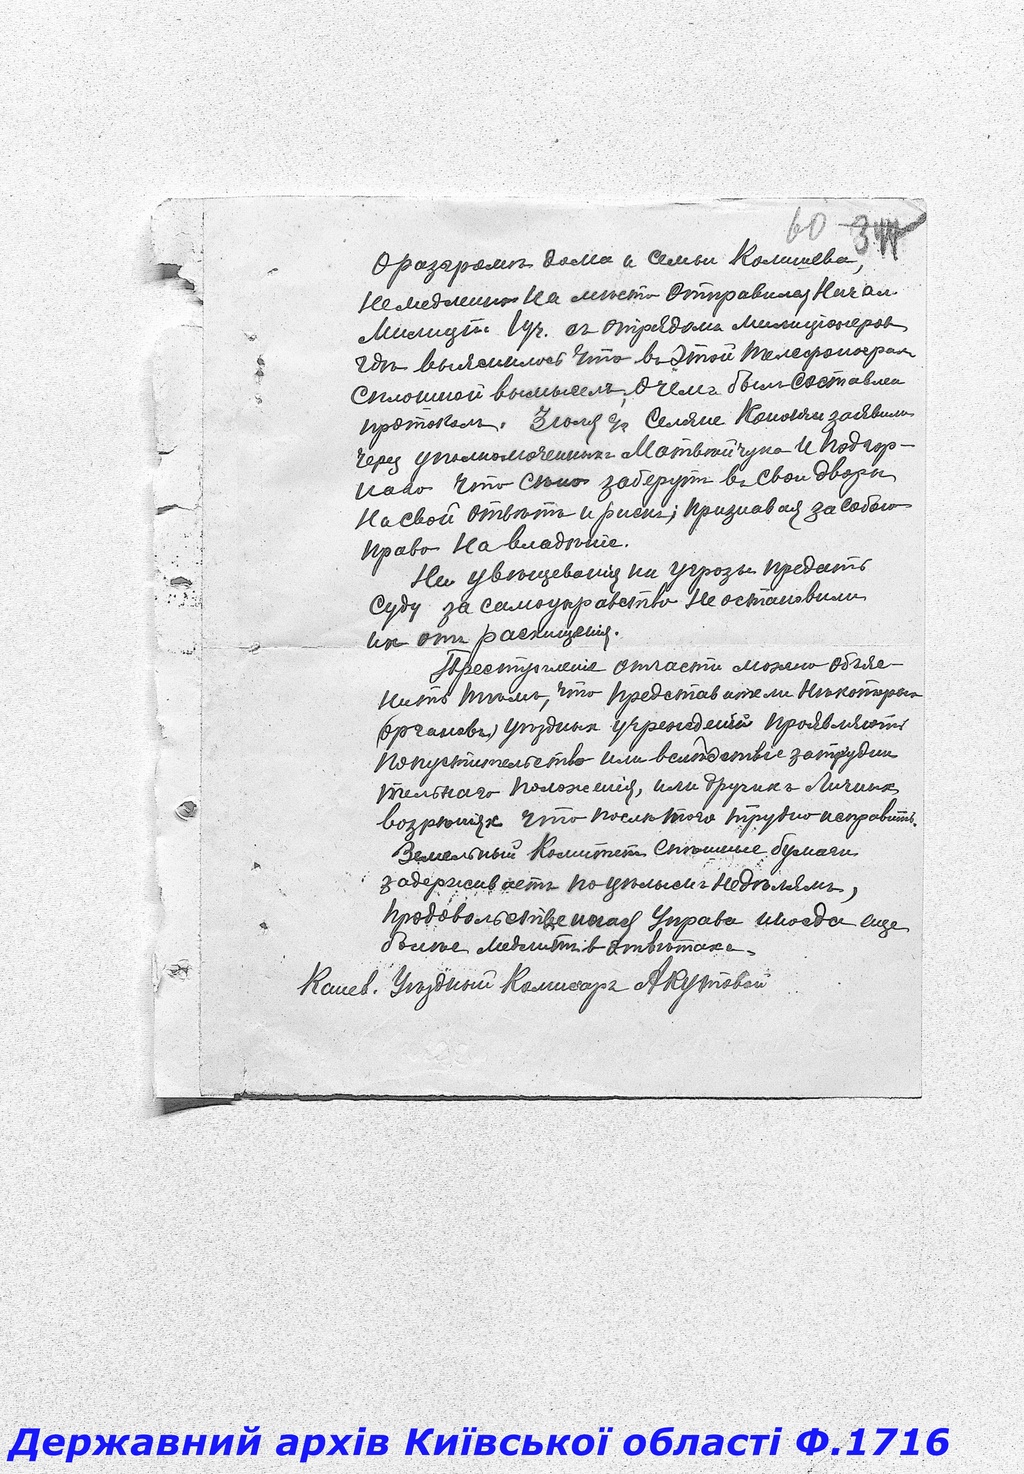 60 344
О разгроме дома и семьи Колишева,
Немедленно На место отправился Начал
Милиции 1 уч. съ отрядомъ милиціонеров
гдѣ выяснилось что въ этой телефонограм
сплошной вымыселъ, о чемъ былъ составлен
протоколъ. 3 Іюля с/г Селяне Конончи заявили
через уполномоченныхъ Матвейчука и Подгор-
наго что сѣно заберутъ въ свои дворы
На свой отвѣтъ и рискъ; признавая за собою
право На владѣніе.
Ни увѣщеванія ни угрозы предать
Суду за самоуправство не остановили
их отъ расхищенія.
Преступленіе отчасти можно объяс-
нить тѣмъ, что представители Нѣкоторых
(органовъ) уѣздных учреждений проявляютъ
попустительство или вслѣдствіе затрудни
тельнаго положенія, или других Личных
возрѣніях что послѣ того трудно исправить.
Земельный Комитет спѣшные бумаги
задерживаетъ по цѣлымъ недѣлямъ,
продовольственная Управа иногда еще
болѣе медлитъ в отвѣтахъ.
Канев. Уѣздный Комисаръ Акутовой
Державний архів Київської області Ф.1716